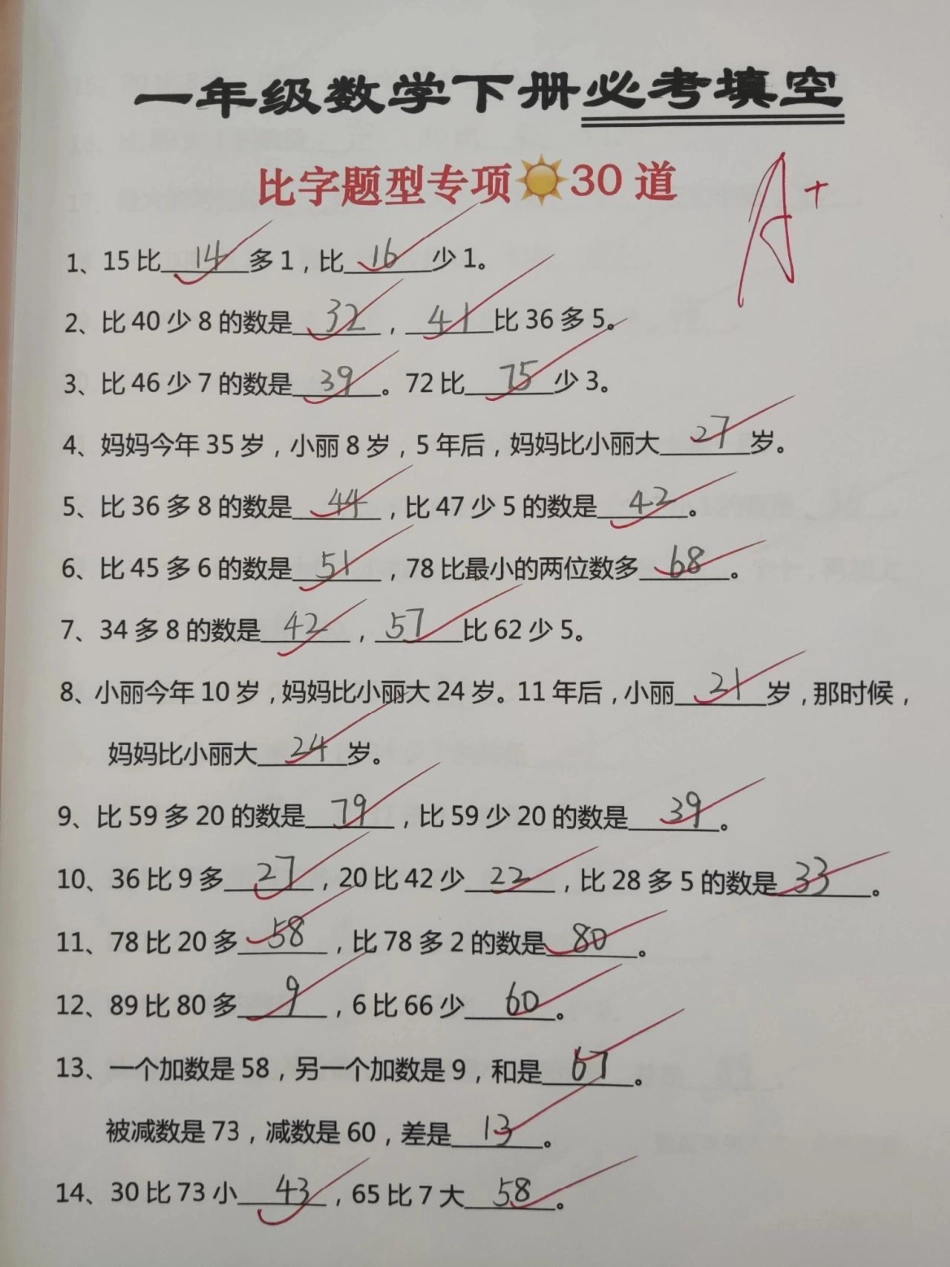 一年级数学下册必考填空
比字题型专项☀30 道
A+
1、15 比 14 多 1，比 16 少 1。
2、比 40 少 8 的数是 32 ， 41 比 36 多 5。
3、比 46 少 7 的数是 39 。72 比 75 少 3。
4、妈妈今年 35 岁，小丽 8 岁，5 年后，妈妈比小丽大 27 岁。
5、比 36 多 8 的数是 44 ，比 47 少 5 的数是 42 。
6、比 45 多 6 的数是 51 ，78 比最小的两位数多 68 。
7、34 多 8 的数是 42 ， 57 比 62 少 5。
8、小丽今年 10 岁，妈妈比小丽大 24 岁。11 年后，小丽 21 岁，那时候，
妈妈比小丽大 24 岁。
9、比 59 多 20 的数是 79 ，比 59 少 20 的数是 39 。
10、36 比 9 多 27 ，20 比 42 少 22 ，比 28 多 5 的数是 33 。
11、78 比 20 多 58 ，比 78 多 2 的数是 80 。
12、89 比 80 多 9 ，6 比 66 少 60 。
13、一个加数是 58，另一个加数是 9，和是 67 。
被减数是 73，减数是 60，差是 13 。
14、30 比 73 小 43 ，65 比 7 大 58 。